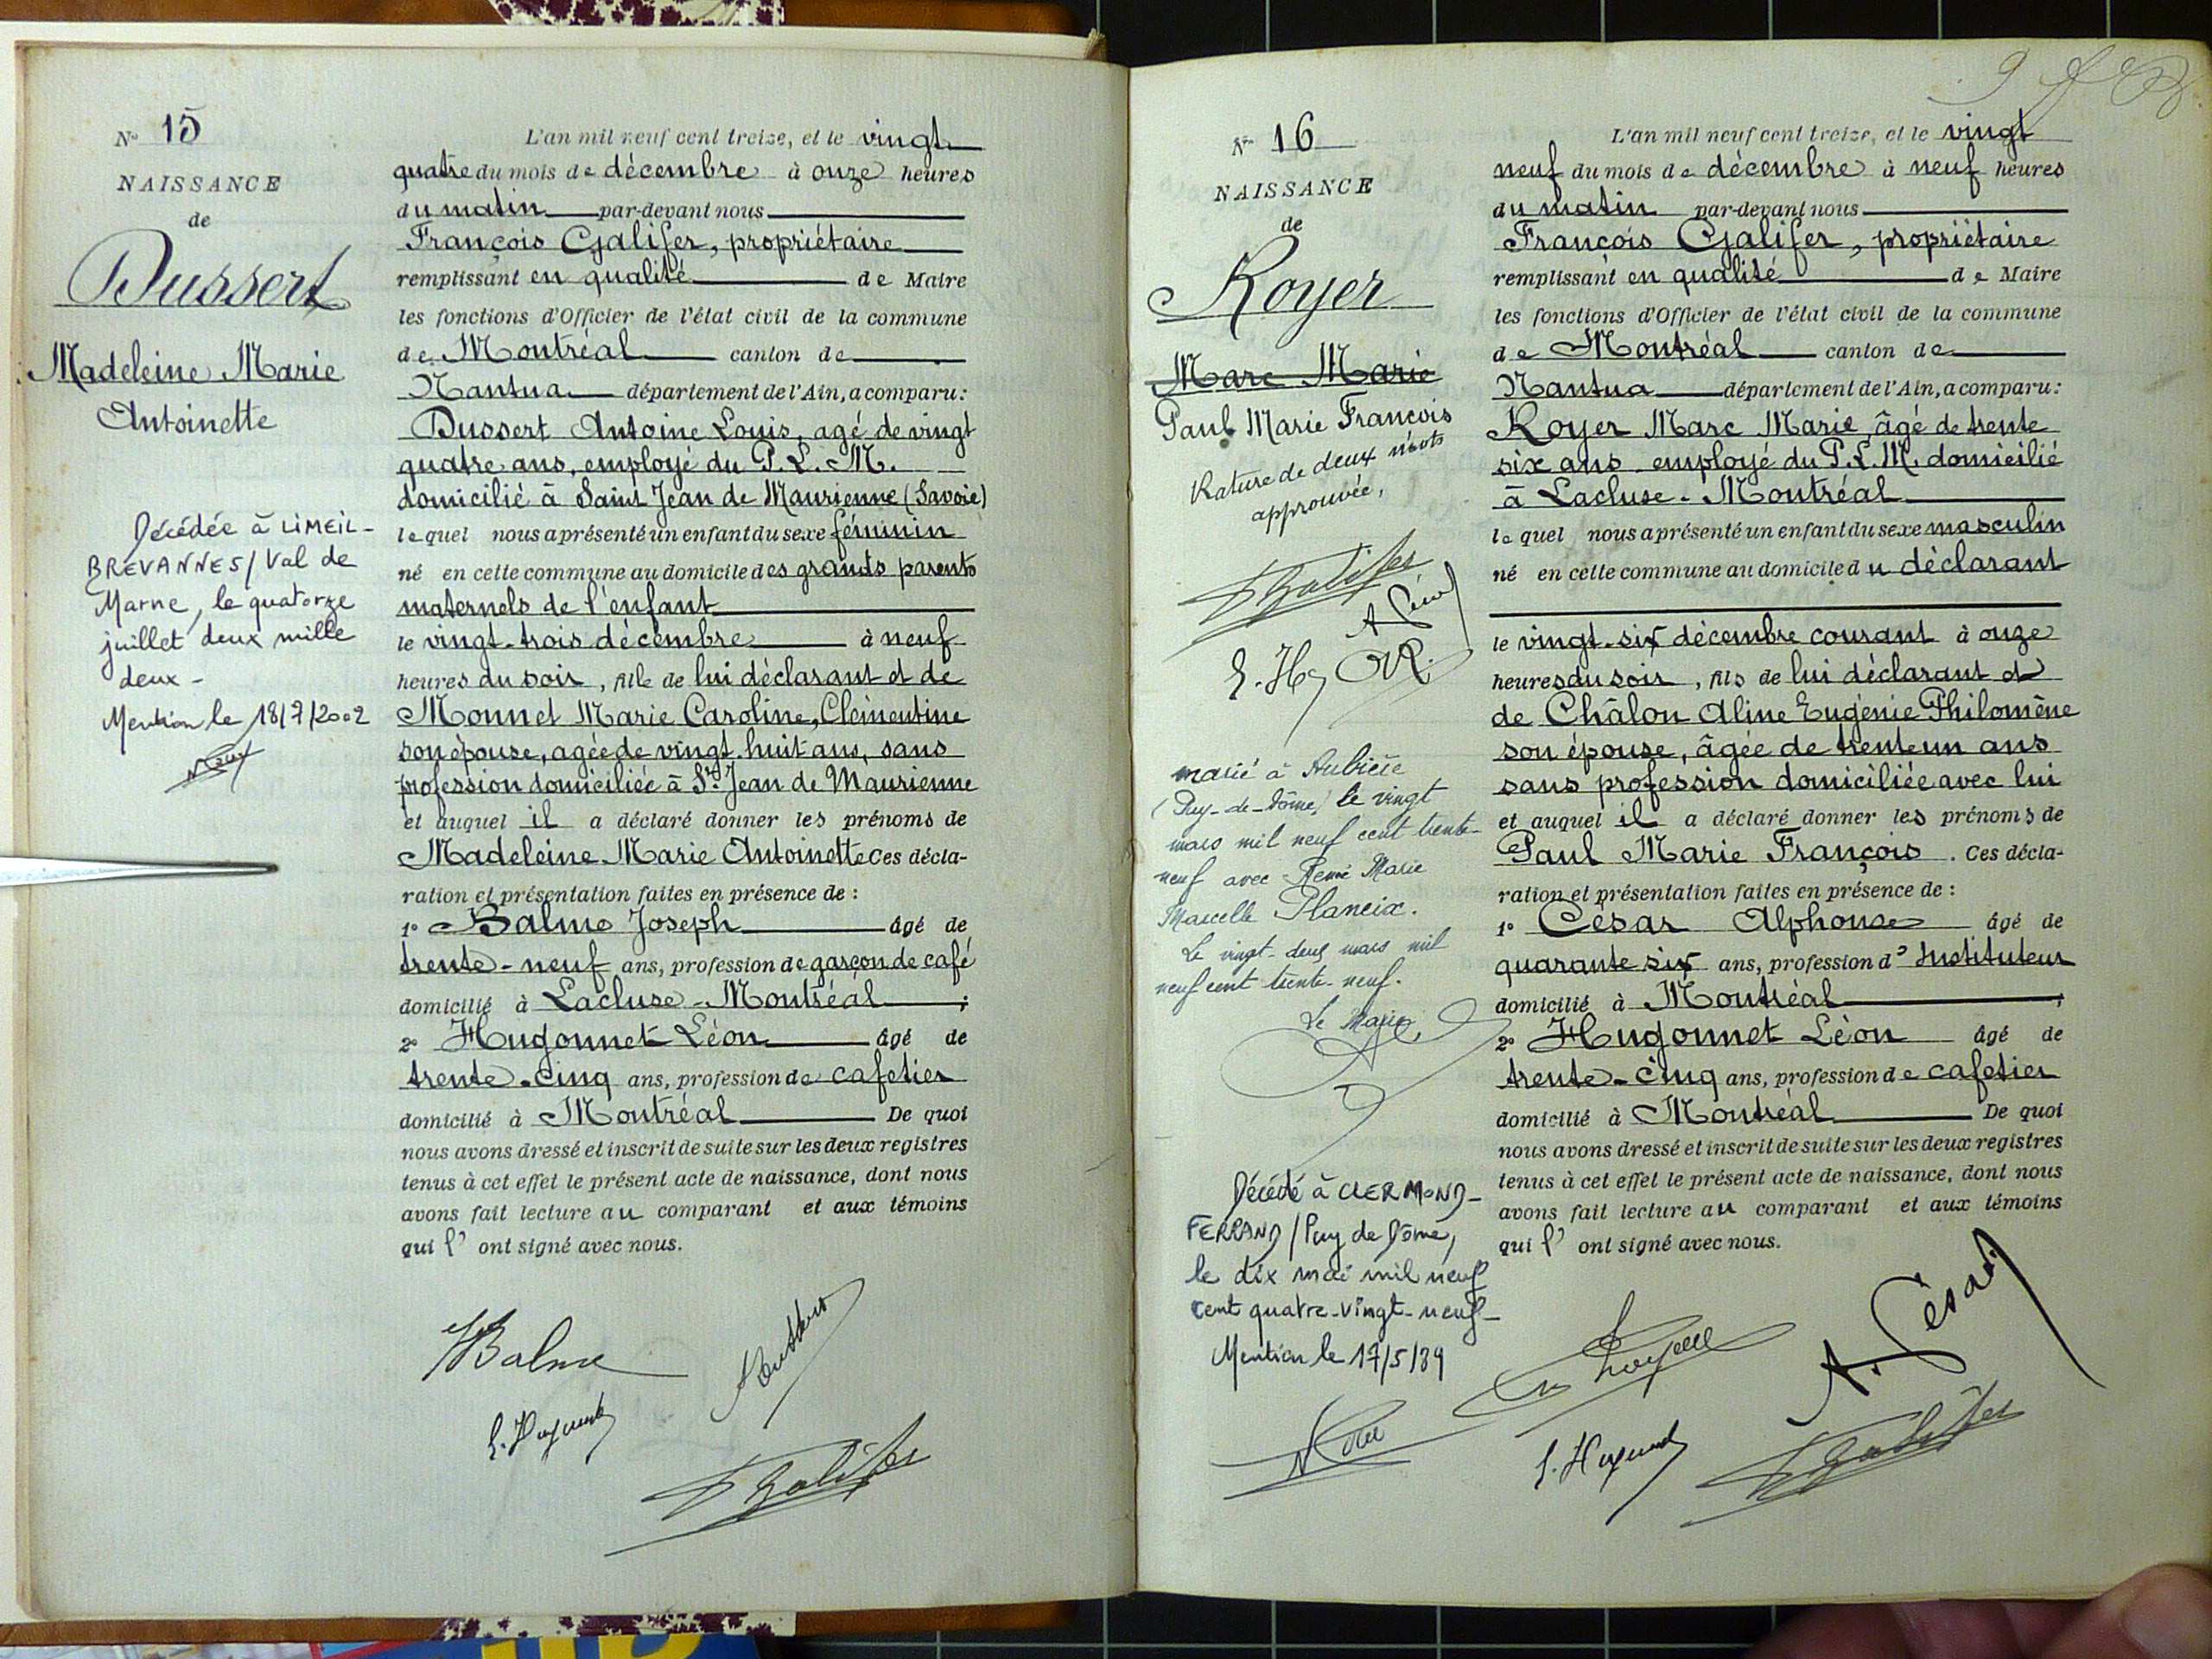 N° 15
NAISSANCE
de
Bussert
Madeleine Marie
Antoinette
Décédée à LIMEIL-
BREVANNES / Val de
Marne, le quatorze
juillet deux mille
deux -
Mention le 18/7/2002
L'an mil neuf cent treize, et le vingt
quatre du mois de décembre à onze heures
du matin par-devant nous
François Galifer, propriétaire
remplissant en qualité de Maire
les fonctions d'Officier de l'état civil de la commune
de Montréal canton de
Nantua département de l'Ain, a comparu :
Bussert Antoine Louis, agé de vingt
quatre ans, employé du P. L. M.
domicilié à Saint Jean de Maurienne (Savoie)
lequel nous a présenté un enfant du sexe féminin
né en cette commune au domicile des grands parents
maternels de l'enfant
le vingt-trois décembre à neuf
heures du soir, fille de lui déclarant et de
Monnet Marie Caroline, Clémentine
son épouse, agée de vingt huit ans, sans
profession domiciliée à St Jean de Maurienne
et auquel il a déclaré donner les prénoms de
Madeleine Marie Antoinette Ces décla-
ration et présentation faites en présence de :
1° Balme Joseph âgé de
trente-neuf ans, profession de garçon de café
domicilié à Lacluse-Montréal ;
2° Hugonnet Léon âgé de
trente-cinq ans, profession de cafetier
domicilié à Montréal De quoi
nous avons dressé et inscrit de suite sur les deux registres
tenus à cet effet le présent acte de naissance, dont nous
avons fait lecture au comparant et aux témoins
qui l' ont signé avec nous.
Balme
L. Hugonnet
Galifer
N° 16
NAISSANCE
de
Royer
Marc Marie
Paul Marie François
Rature de deux mots
approuvée,
Galifer
A César
L. H
marié à Aubière
(Puy-de-Dôme) le vingt
mars mil neuf cent trente-
neuf avec Renée Marie
Marcelle Planeix.
Le vingt-deux mars mil
neuf cent trente-neuf.
Le Maire,
Décédé à CLERMOND-
FERRAND / Puy de Dôme,
le dix mai mil neuf
cent quatre-vingt-neuf-
Mention le 17/5/89
9
L'an mil neuf cent treize, et le vingt
neuf du mois de décembre à neuf heures
du matin par-devant nous
François Galifer, propriétaire
remplissant en qualité de Maire
les fonctions d'Officier de l'état civil de la commune
de Montréal canton de
Nantua département de l'Ain, a comparu :
Royer Marc Marie, âgé de trente
six ans employé du P. L. M. domicilié
à Lacluse-Montréal
lequel nous a présenté un enfant du sexe masculin
né en cette commune au domicile du déclarant
le vingt-six décembre courant à onze
heures du soir, fils de lui déclarant et
de Châlon Aline Eugénie Philomène
son épouse, âgée de trente un ans
sans profession domiciliée avec lui
et auquel il a déclaré donner les prénoms de
Paul Marie François . Ces décla-
ration et présentation faites en présence de :
1° César Alphonse âgé de
quarante six ans, profession d' Instituteur
domicilié à Montréal ;
2° Hugonnet Léon âgé de
trente-cinq ans, profession de cafetier
domicilié à Montréal De quoi
nous avons dressé et inscrit de suite sur les deux registres
tenus à cet effet le présent acte de naissance, dont nous
avons fait lecture au comparant et aux témoins
qui l' ont signé avec nous.
A. César
L. Hugonnet
Galifer